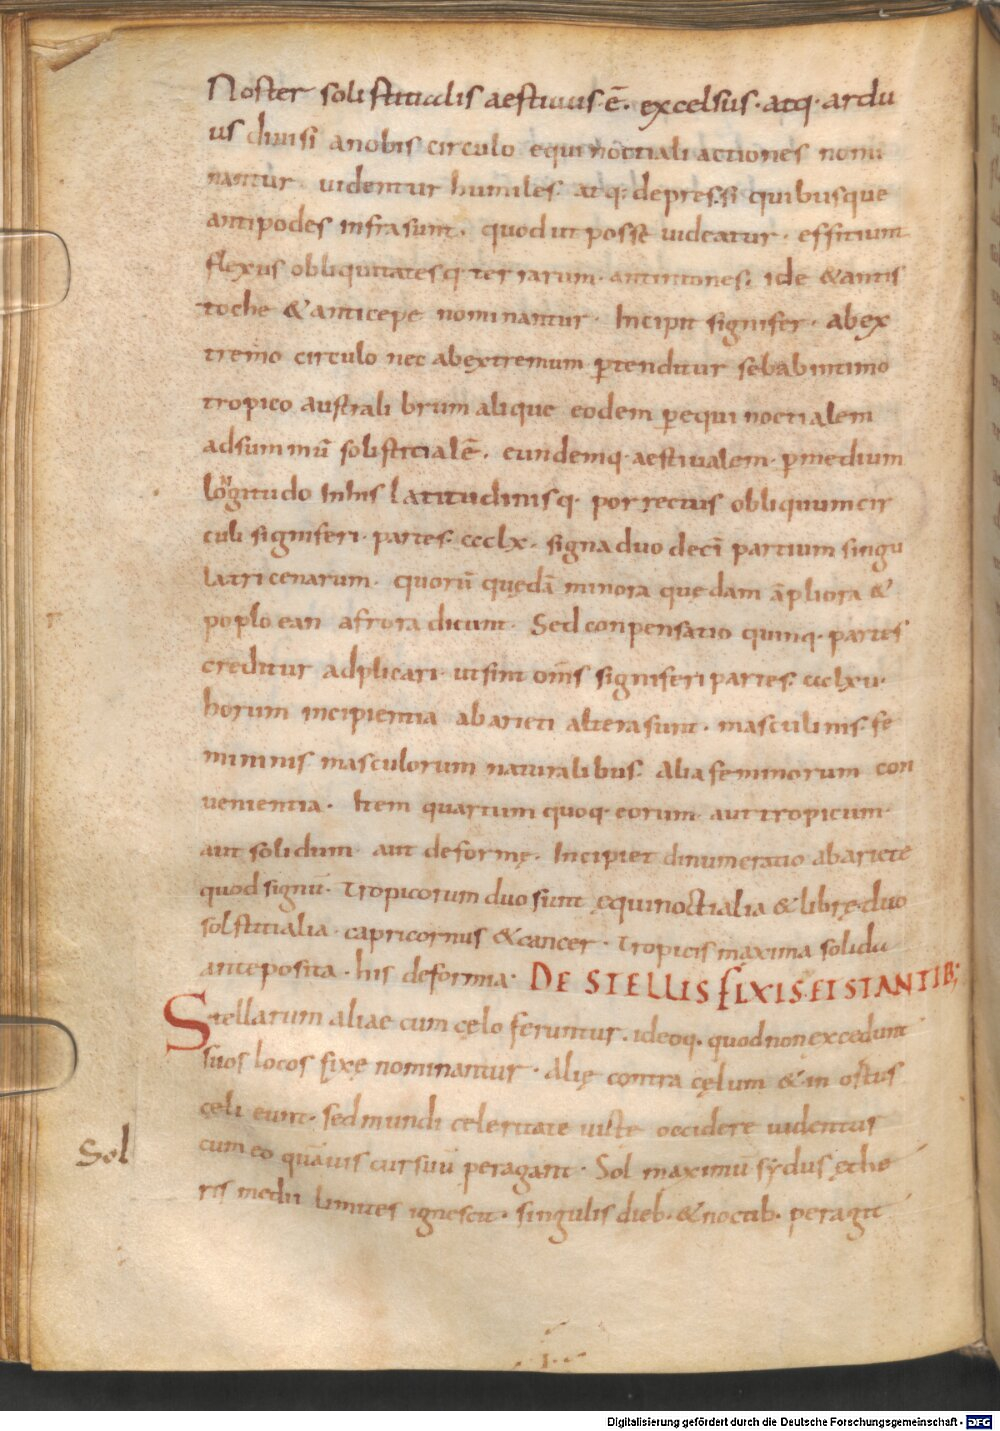 Noster solistitialis aestiuus·ē· excelsus·atq·ardu
us diuisi anobis circulo equinoctiali actiones nomi
nantur uidentur humiles· atq; depressi quibusque
antipodes infrasunt· quod ut possit uideatur· effitium
flexus obliquitatesq terrarum· antintones· ide &antis
toche &anticepe nominantur· Incipit signifer· abex
tremo circulo nec abextremum ptenditur sebabintimo
tropico australi brumalique eodem pequinoctialem
adsummū solistitialē· eundemq·aestiualem·pmedium
longitudo inhis latitudinisq· porrectus obliquumcir
culi signiferi·partes·ccclx·signaduodecī partium singu
latricenarum· quorū quędā minora quedam āpliora &
poplo ean afrora dicunt· Sed conpensatio quinq·partes
creditur adplicari·utsint om̄s signiferi partes·ccclxu·
horum incipientia abarieti alterasunt·masculinis·fe
mininis masculorum naturalibus· Alia feminorum con
uenientia· Item quartum quoq·eorum· aut tropicum·
aut solidum aut deformę· Incipiet dinumeratio abariete
quod signū· Tropicorum duo sunt ęquinoctialia &librę·duo
solstitialia·capricornus &cancer·tropicis maxima solidu
anteposita·his deformia· DE STELLIS FIXIS·EISTANTIB;
Stellarum aliae cum cęlo feruntur·ideoq·quodnonexcedunt
suos locos fixę nominantur·Alię contra cęlum &in ostus
cęli eunt·sed mundi celeritate uiste occidere uidentur
cum eo quāuis cursuū peragant· Sol maximū sydus ęthe
Sol
ris medii limites ignescit·singulis dieb·&noctib·peragit
·I·
Digitalisierung gefördert durch die Deutsche Forschungsgemeinschaft - DFG